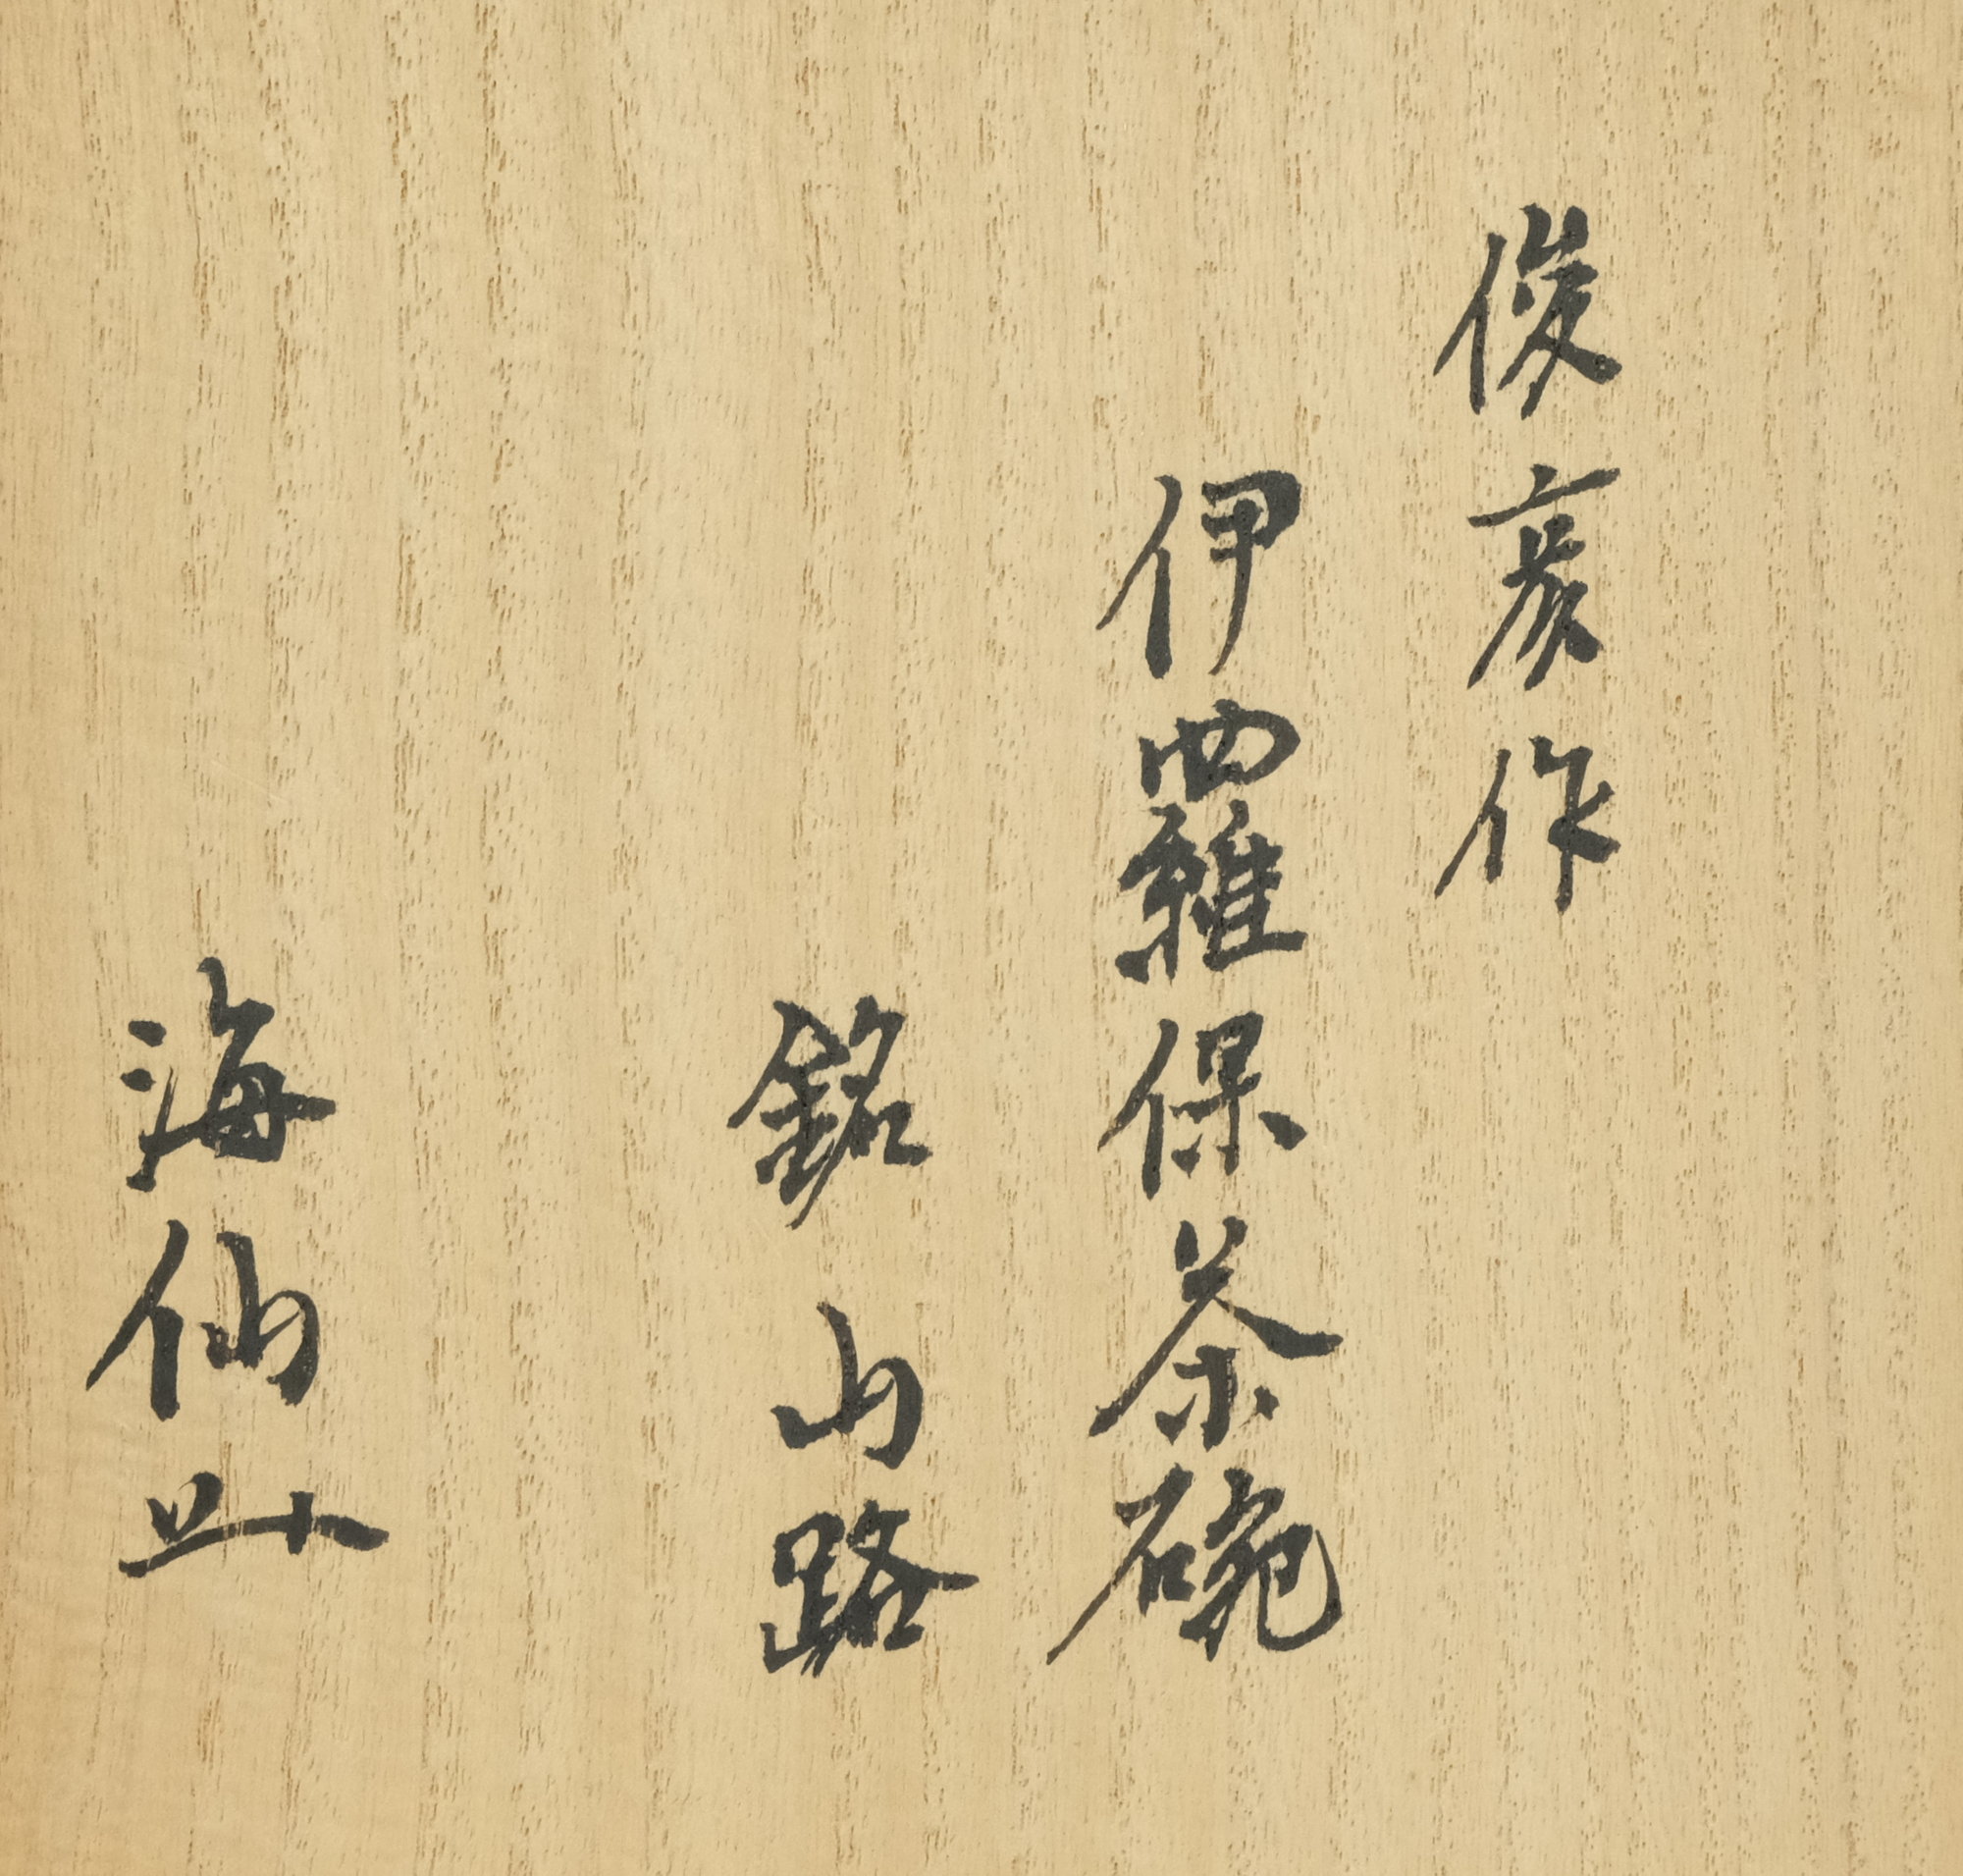 俊彦作
伊羅保茶碗
銘 山路
海仙